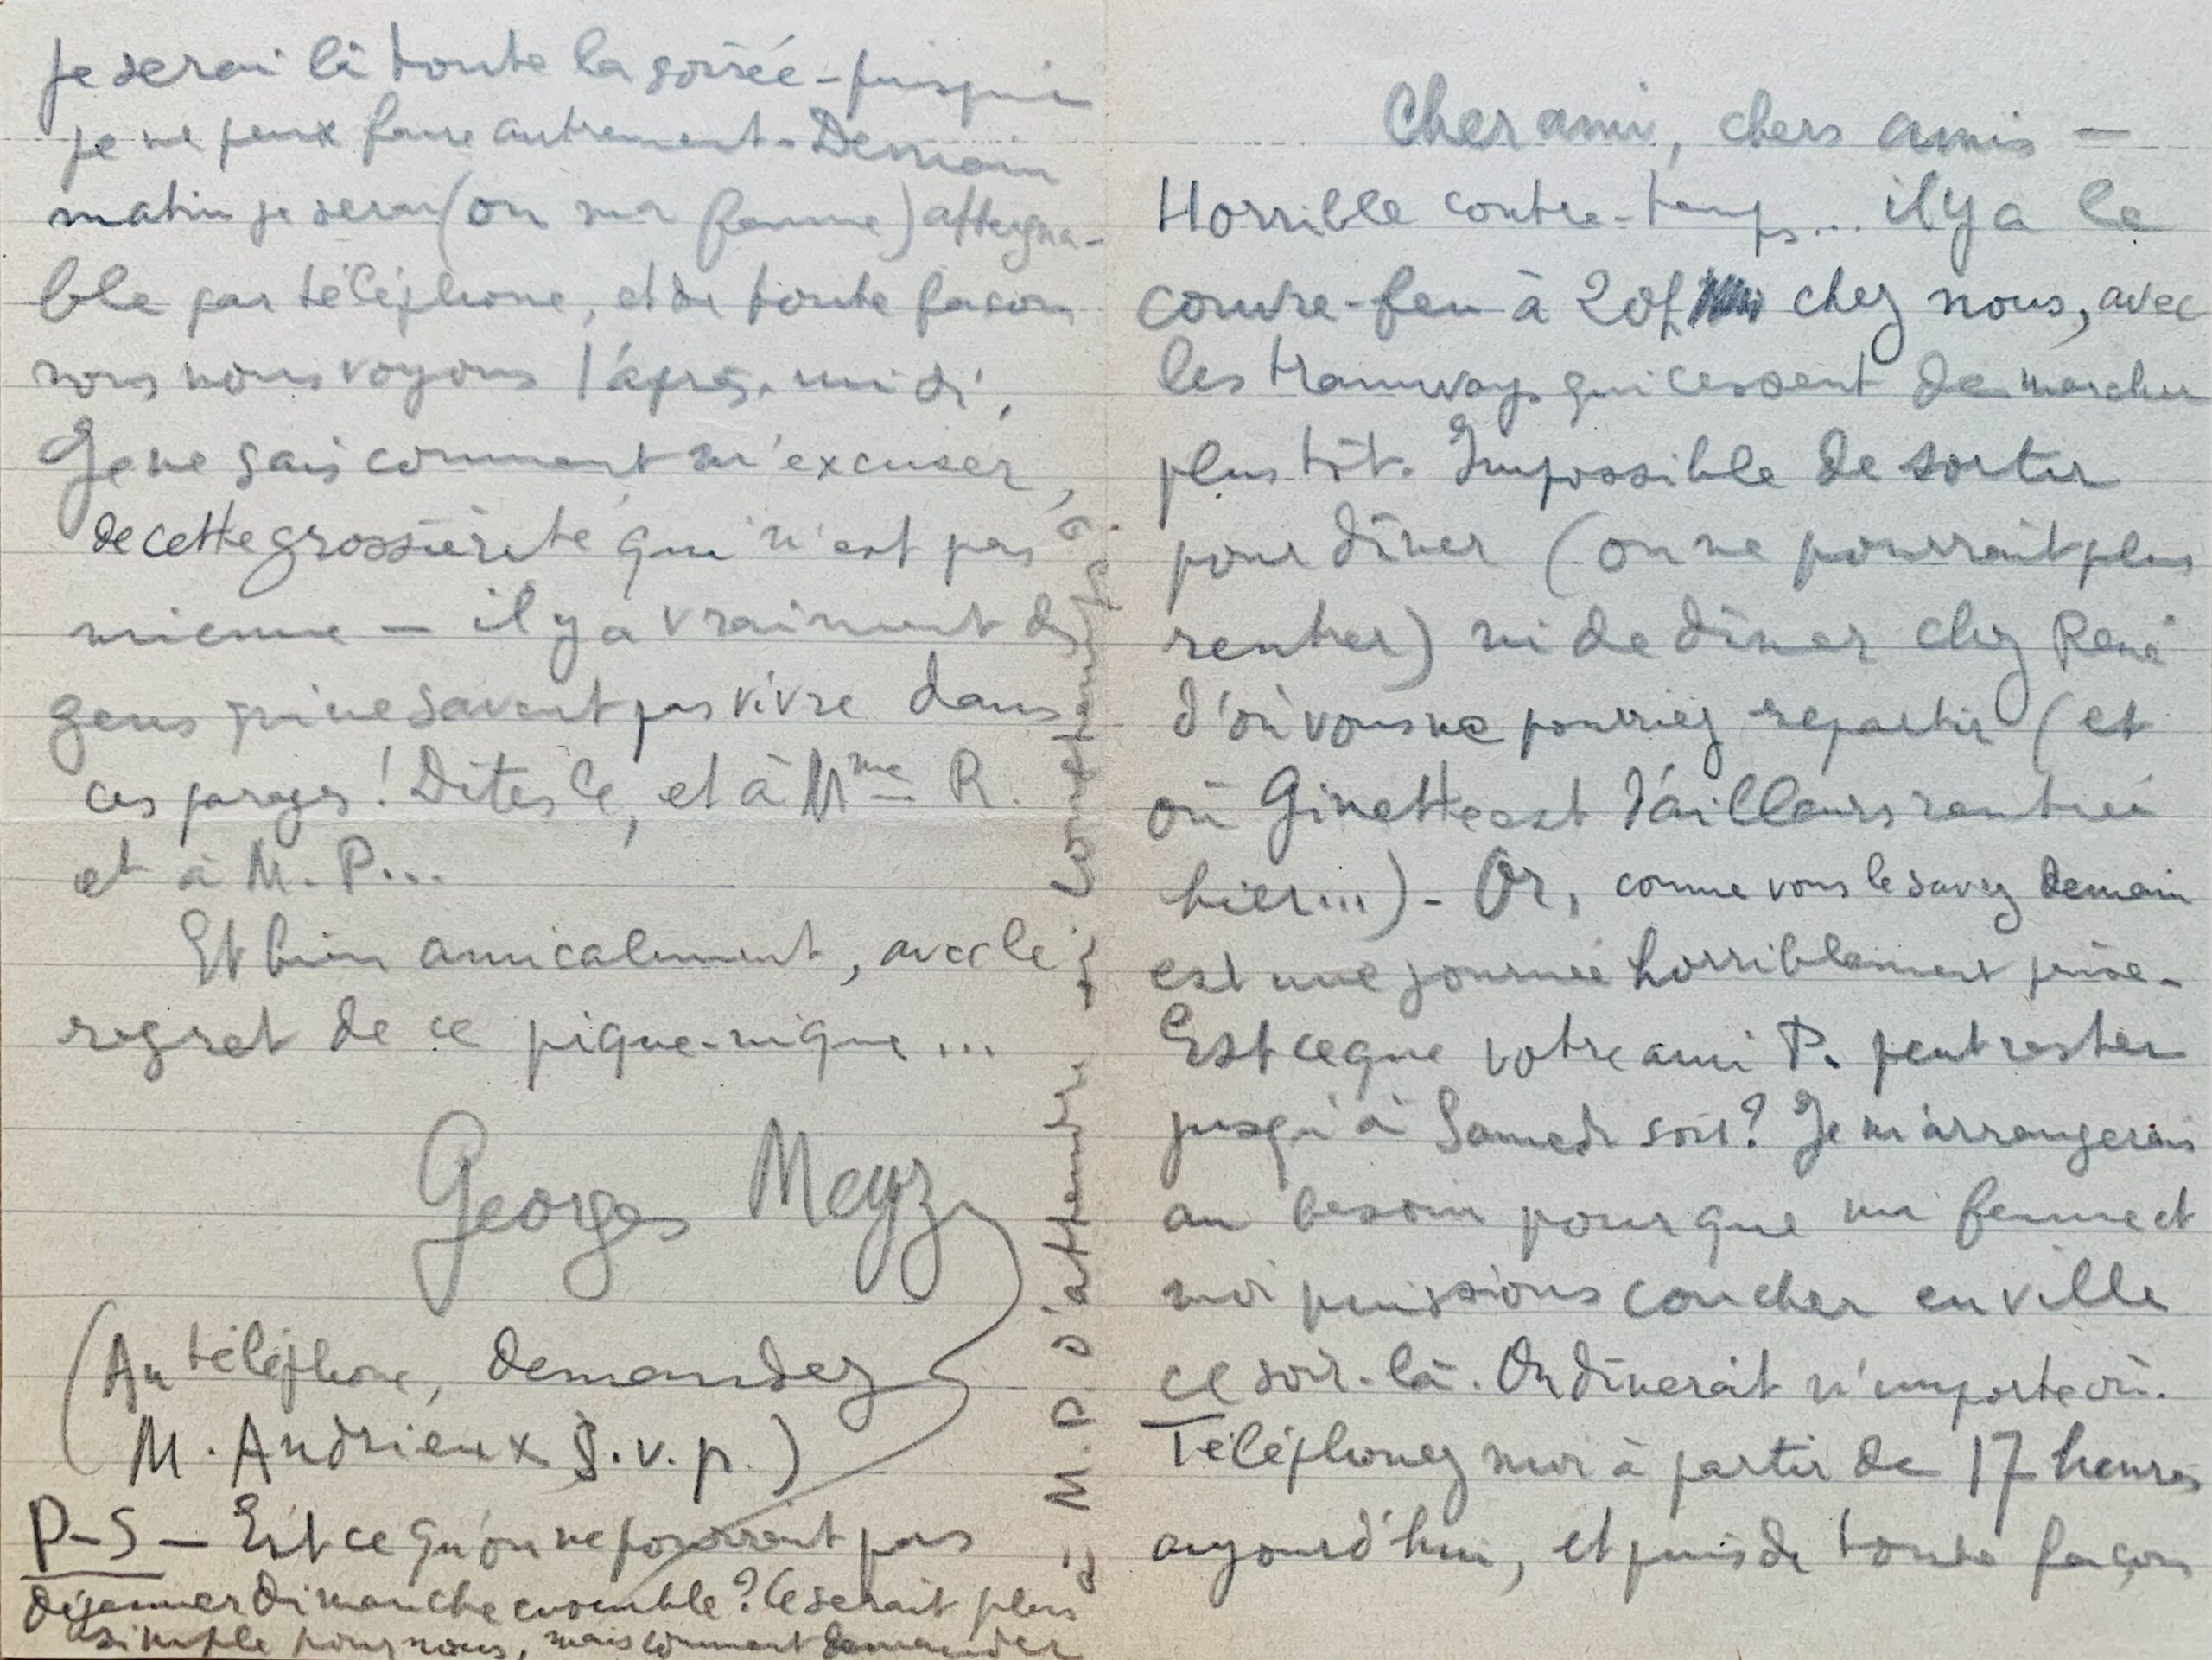 Cher ami, chers amis —
Horrible contre-temps... il y a le
couvre-feu à 20h chez nous, avec
les tramways qui cessent de marcher
plus tôt. Impossible de sortir
pour dîner (on ne pourrait plus
rentrer) ni de dîner chez René
d'où vous ne pourriez repartir (et
où Ginette est d'ailleurs rentrée
hier...) - Or, comme vous le savez demain
est une journée horriblement prise -
Est ce que votre ami P. peut rester
jusqu'à Samedi soir? Je m'arrangerais
au besoin pour que ma femme et
moi puissions coucher en ville
ce soir-là. On dînerait n'importe où.
Téléphonez moi à partir de 17 heures
aujourd'hui, et puis de toute façon
je serai là toute la soirée - puisque
je ne peux faire autrement. Demain
matin je serai (ou ma femme) atteigna-
ble par téléphone, et de toute façon
nous nous voyons l'après-midi,
Je ne sais comment m'excuser,
de cette grossièreté qui n'est pas
mienne — il y a vraiment des
gens qui ne savent pas vivre dans
ces parages! Dites le, et à Mme R.
et à M. P...
Et bien amicalement, avec le
regret de ce pique-nique...
Georges Meyz
(Au téléphone, demandez
M. Andrieux S.v.p.)
P-S — Est ce qu'on ne pourrait pas
déjeuner dimanche ensemble? Ce serait plus
simple pour nous, mais comment demander
à M. P. d'attendre